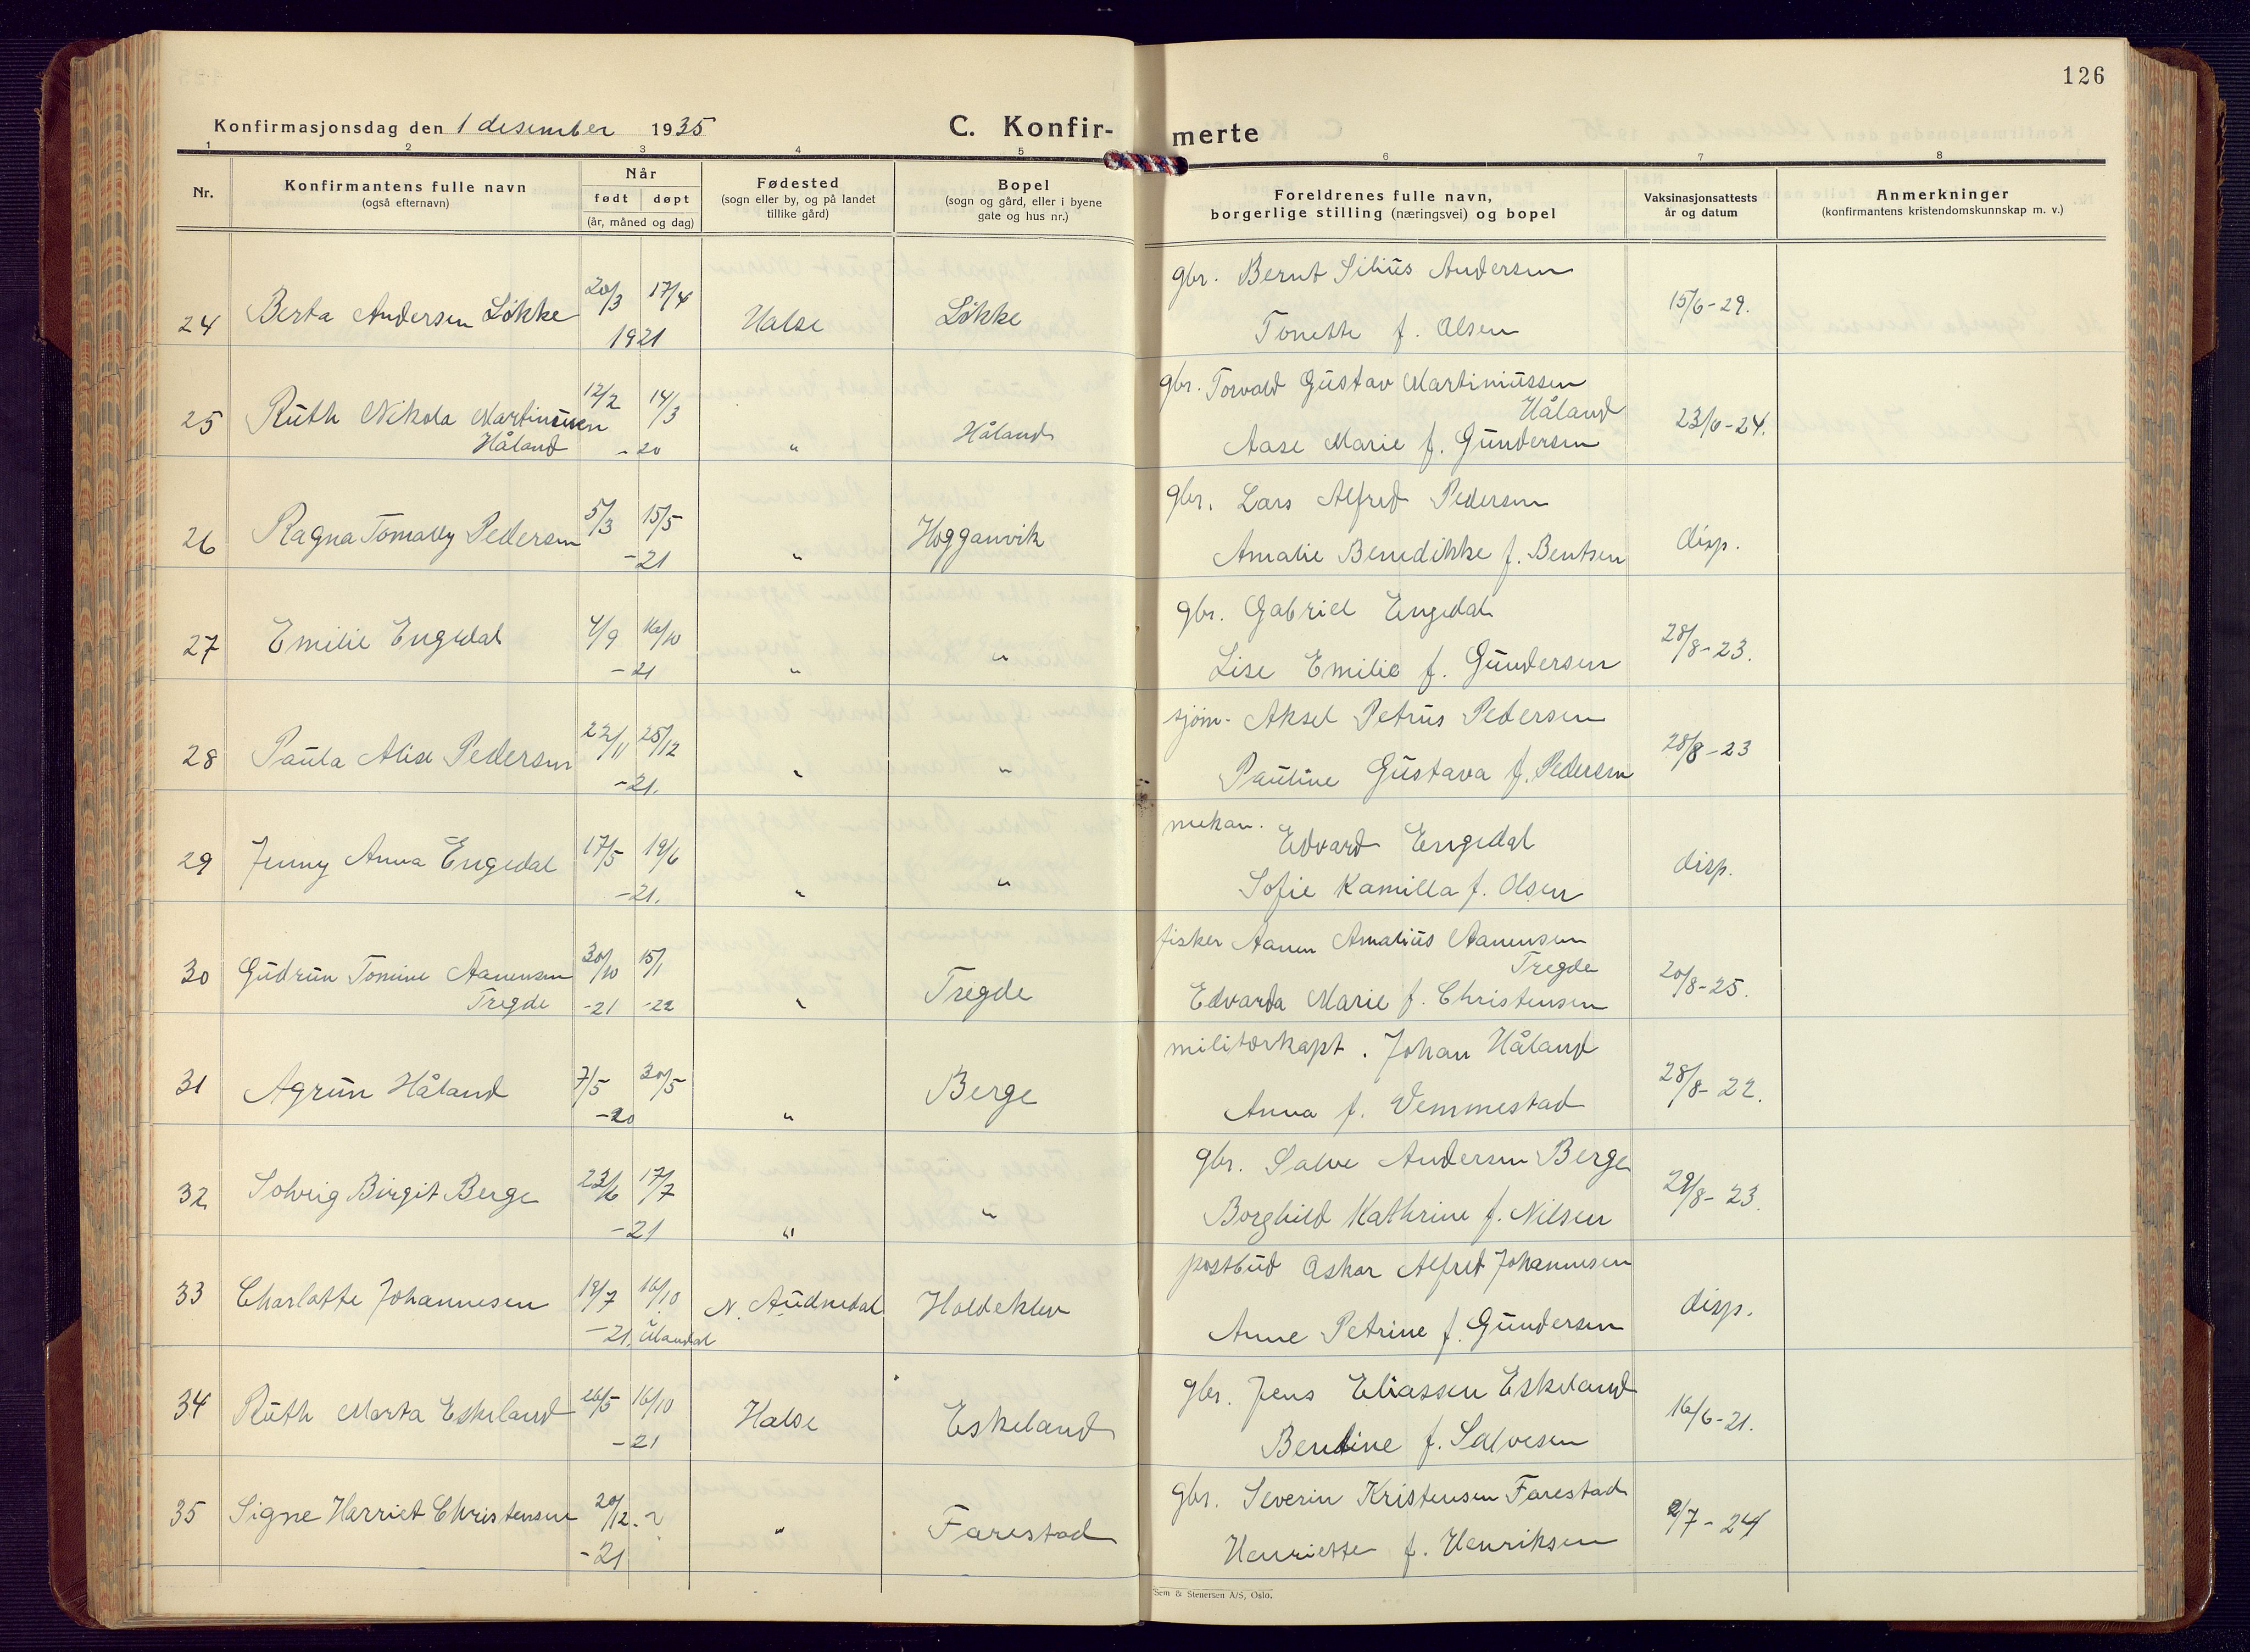 126
Konfirmasjonsdag den 1 desember 1935
C. Konfir-
merte
1 2 3 4 5 6 7 8
Nr.
Konfirmantens fulle navn
(også efternavn)
Når
født døpt
(år, måned og dag)
Fødested
(sogn eller by, og på landet
tillike gård)
Bopel
(sogn og gård, eller i byene
gate og hus nr.)
Foreldrenes fulle navn,
borgerlige stilling (næringsvei) og bopel
Vaksinasjonsattests
år og datum
Anmerkninger
(konfirmantens kristendomskunnskap m. v.)
gbr. Bernt Silius Andersen
24 Berta Andersen Løkke 20/3 17/4 Halse Løkke 15/6-29.
1921 Tonette f. Olsen
gbr. Torvald Gustav Martiniussen
25 Ruth Nikola Martinsen 12/2 14/3 Håland 23/6-24.
Håland -20 " Håland
Aase Marie f. Gundersen
gbr. Lars Alfred Pedersen
26 Ragna Tomally Pedersen 5/3 15/5 " Hogganvik disp.
-21 Amalie Benedikke f. Bentsen
gbr. Gabriel Engedal
27 Emilie Engedal 4/9 16/10 " " 28/8-23.
-21 Lise Emilie f. Gundersen
sjøm. Aksel Petrus Pedersen
28 Paula Alise Pedersen 22/11 25/12 " " 28/8-23
-21. Pauline Gustava f. Pedersen
mekan. Edvard Engedal
29 Jenny Anna Engedal 17/5 19/6 " " disp.
-21. Sofie Kamilla f. Olsen
fisker Aanen Amalius Aanensen
30 Gudrun Tomine Aanensen 30/10 15/1 Tregde 20/8-25.
Tregde -21 -22 " Tregde
Edvarda Marie f. Christensen
militærkapt. Johan Håland
31 Agrun Håland 7/5 30/5 " Berge 28/8-22.
-20 Anna f. Vemmestad
gbr. Salve Andersen Berge
32 Solveig Birgit Berge 23/6 17/7 " " 29/8-23.
-21 Borghild Kathrine f. Nilsen
postbud Oskar Alfred Johannesen
33 Charlotte Johannesen 19/7 16/10 N. Audnedal Holdeklev disp.
-21. Anne Petrine f. Gundersen
gbr. Jens Eliassen Eskeland
34 Ruth Marta Eskeland 26/5 16/10 Halse Eskeland 16/6-21.
-21 Bentine f. Salvesen
gbr. Severin Kristensen Farestad
35 Signe Harriet Christensen 20/12 ~ " Farestad 2/7-24
-21 Henriette f. Henriksen
Sem & Stenersen A/S, Oslo.